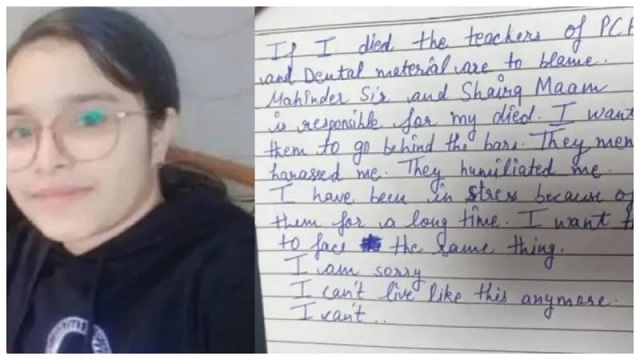 If I died the teachers of
and Dental material are to blame.
Mahinder Sir and Shairg Maam
is responsible for my died. I want
them to go behind the bars. They men
harassed me. They humiliated me.
I have been in stress because o
them for a long time. I want
to face the same thing.
I am sorry
I can't live like this anymore.
I can't..